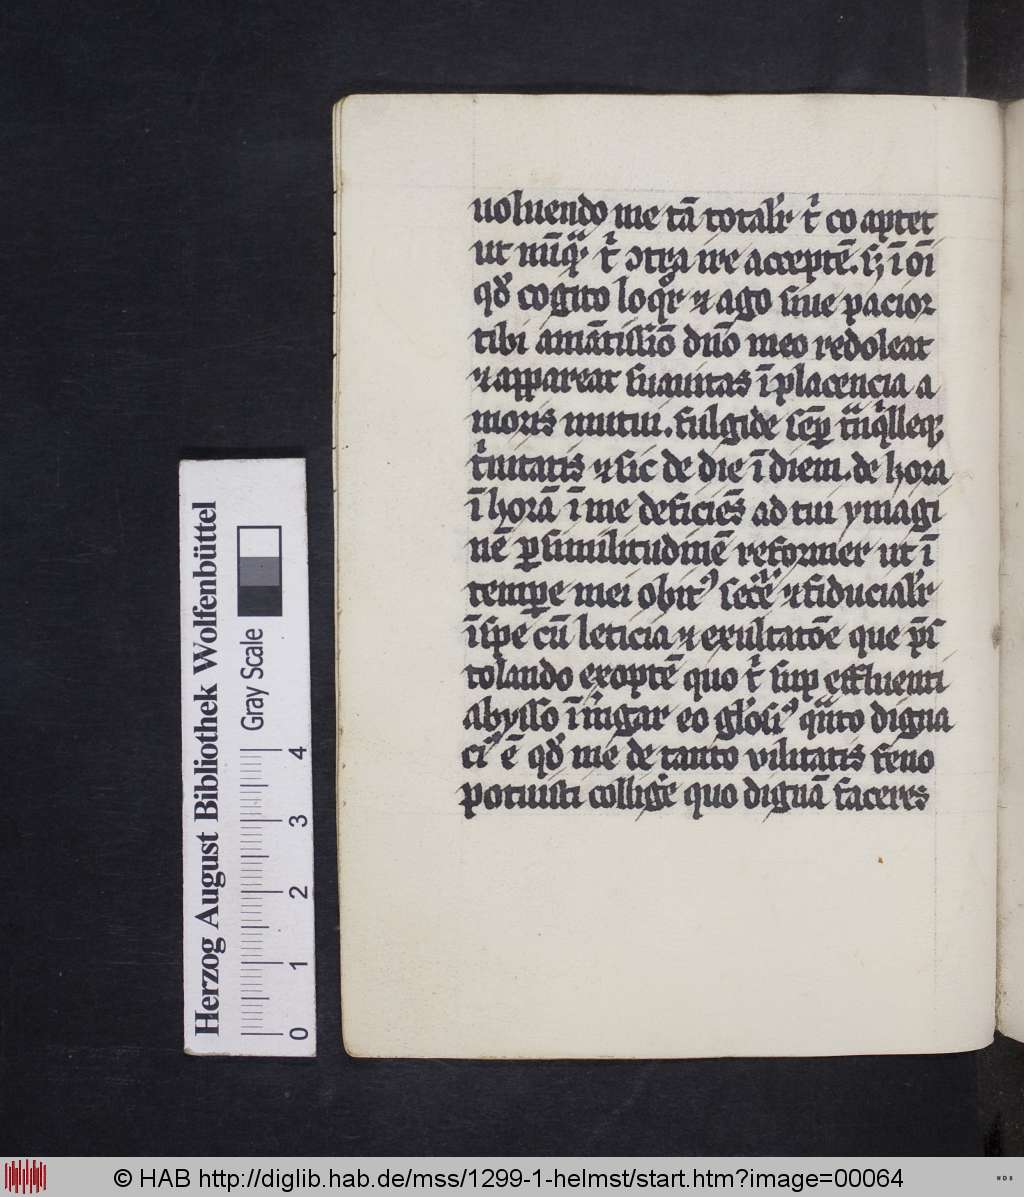 uoluendo me tā totalr̄ t̍ co aptet
ut nūq̄ t̍ ↄtra ire acceptē. sꝫ ī oī
qd̄ cogito loqr̄ ⁊ ago siue pacior
tibi amātissīo dn̄o meo redoleat
⁊ appareat suauitas ī placencia a
moris mutui. fulgide semꝑ
t̄uitatis ⁊ sic de die ī diem. de hora
ī horā ī me deficiēs ad tui ymagi
nē ꝑ similitudinē reformer ut ī
tempe mei obitꝰ ⁊ fiducialr̄
ī spe cū leticia ⁊ exultatōe que p̄s
tolando exoptē quo t̍ sup effluenti
abysso eo digna
ciꝰ ē qd̄ me de tanto vilitatis feno
potuisti collige quo dignā faceres
Herzog August Bibliothek Wolfenbüttel
Gray Scale
0 1 2 3 4
© HAB http://diglib.hab.de/mss/1299-1-helmst/start.htm?image=00064